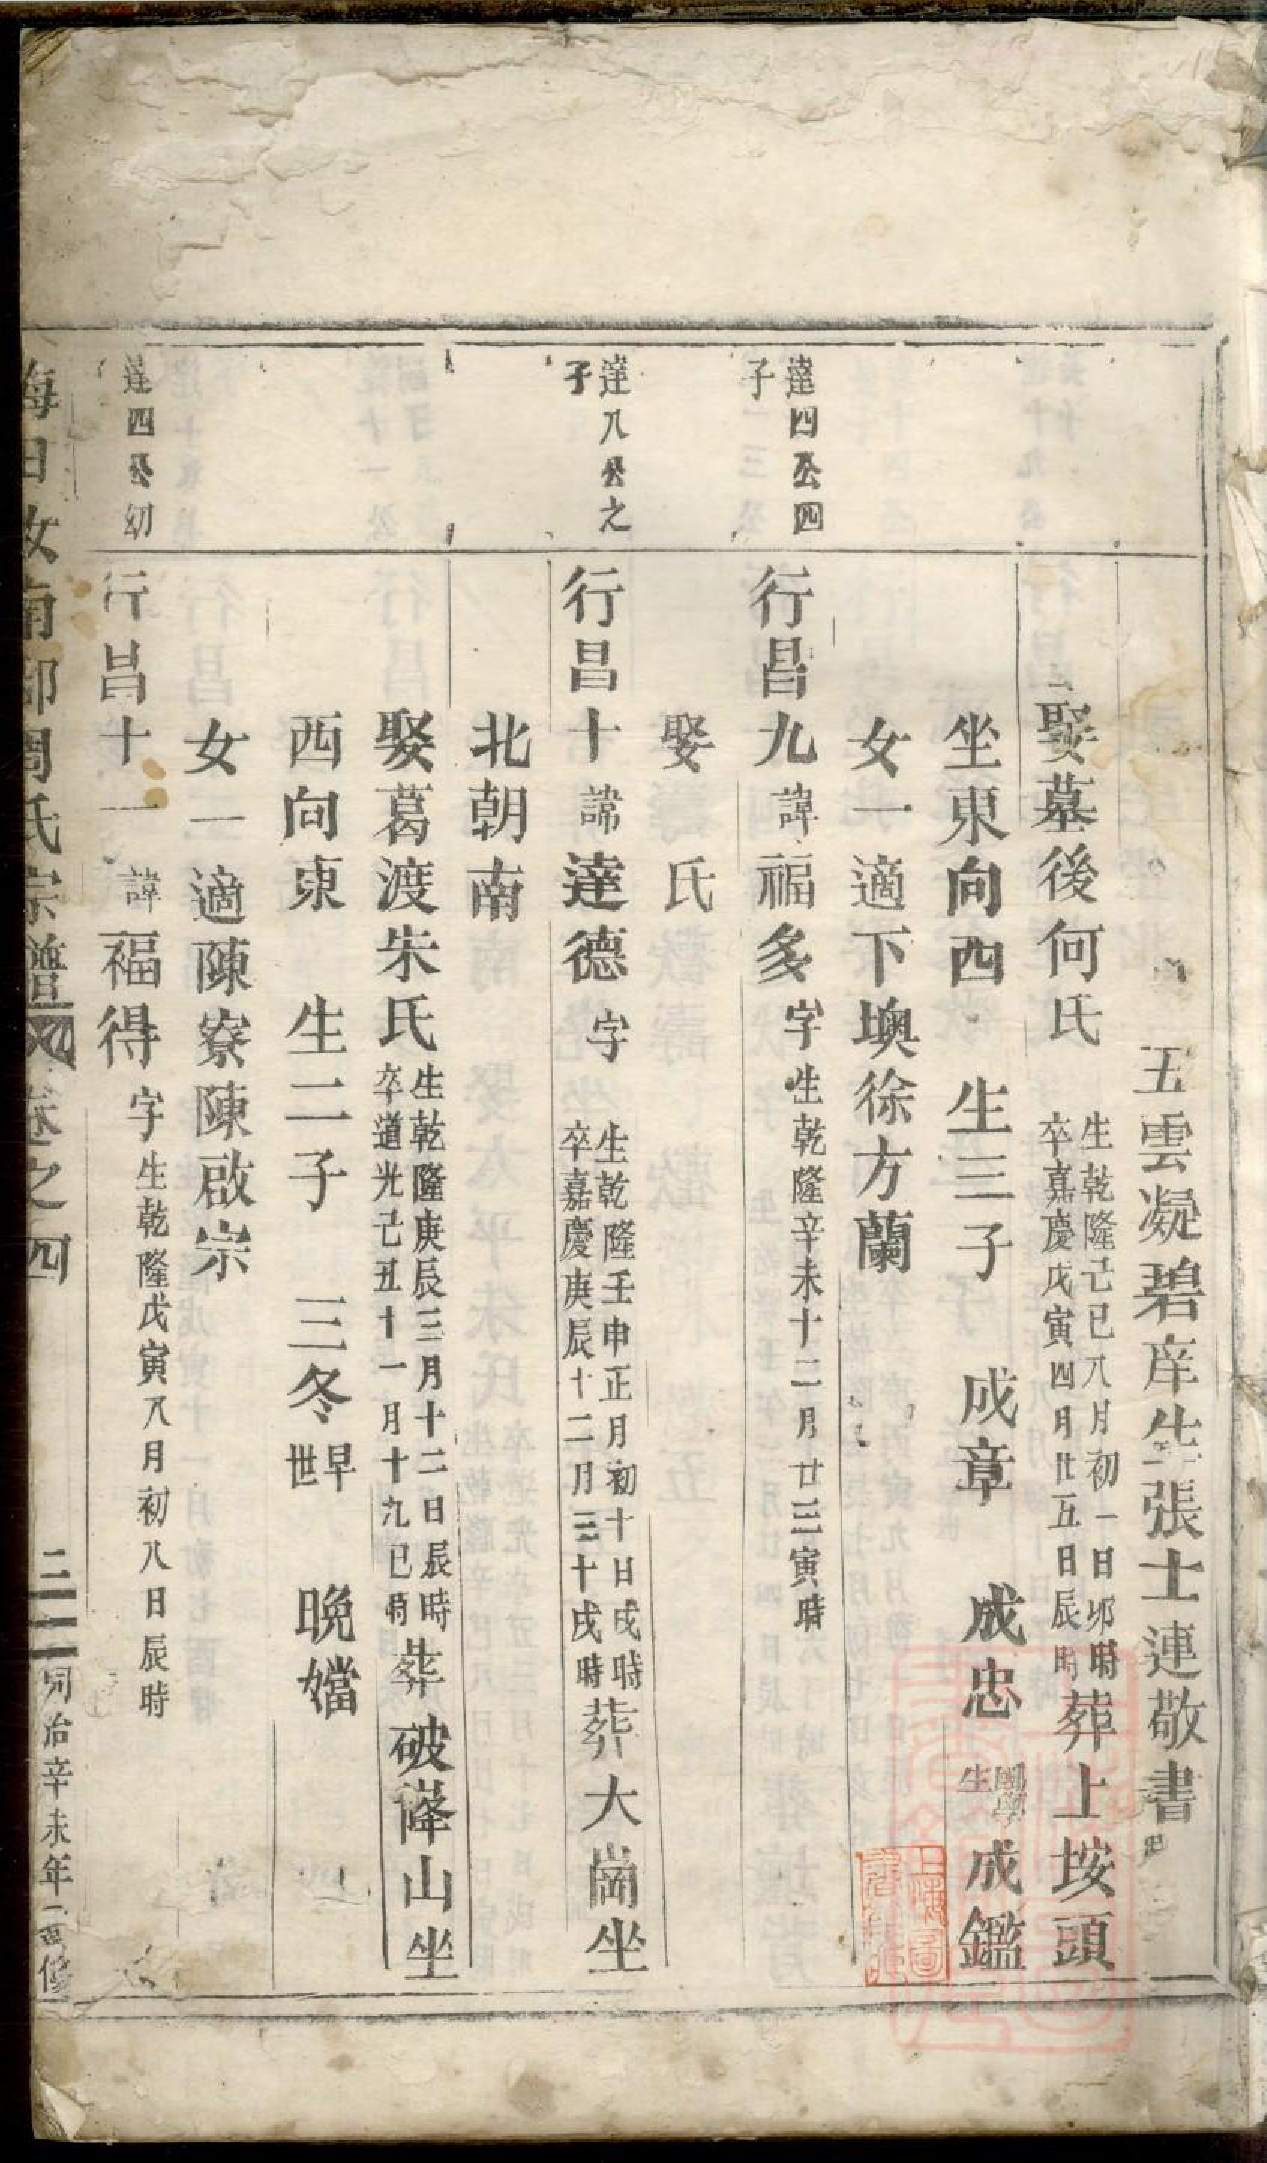 五雲凝碧庠生張士連敬書
娶墓後何氏 生乾隆己巳八月初一日卯時 卒嘉慶戊寅四月廿五日辰時 葬上垵頭
坐東向西 生三子 成章 成忠 國學生 成鑑
女一適下墺徐方蘭
達四公四子
行昌九諱福多字 生乾隆辛未十二月廿三寅時
娶 氏
達八公之子
行昌十諱達德字 生乾隆壬申正月初十日戌時 卒嘉慶庚辰十二月三十戌時 葬大崗坐
北朝南
娶葛渡朱氏 生乾隆庚辰三月十二日辰時 卒道光己丑十一月十九巳時 葬破峰山坐
西向東 生二子 三冬 早世 晚嬉
女一適陳寮陳啟宗
達四公幼
行昌十一諱福得字 生乾隆戊寅八月初八日辰時
汝南郡周氏宗譜 卷之四 同治辛未年重修